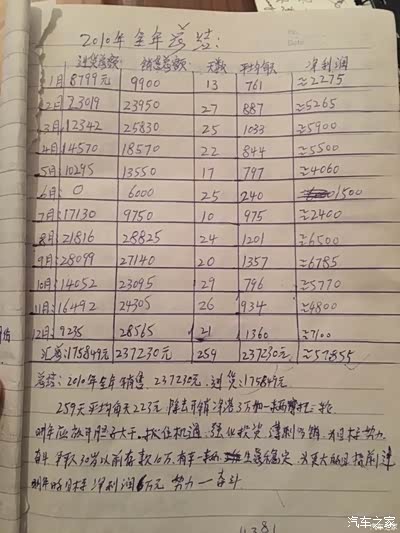 2010年全年总结:
进货总额 销售总额: 天数 平均每天 净利润
1月 8799元 9900 13 761 ≈2275
2月 23019 23950 27 887 ≈5265
3月 12342 25830 25 1033 ≈5900
4月 14570 18570 22 844 ≈5500
5月 10295 13550 17 797 ≈4060
6月: 0 6000 25 240 1500
7月: 17130 9750 10 975 ≈2400
8月: 21816 28825 24 1201 ≈6500
9月: 28099 27140 20 1357 ≈6785
10月: 14052 23095 29 796 ≈5770
11月: 16492 24305 26 934 ≈4800
12月: 9235 28565 21 1360 ≈7100
汇总: 175849元 237230元 259 237230元 ≈57855
总结: 2010年全年销售 237230元, 进货: 175849元
259天平均每天223元 除去开销净落3万加一辆摩托
明年应放开胆子大干. 抓住机遇, 强化投资, 薄利多销, 为目标努力
奋斗 争取30岁以前存款10万, 有车一辆, 生意稳定
明年的目标 净利润6万元 努力—奋斗
汽车之家